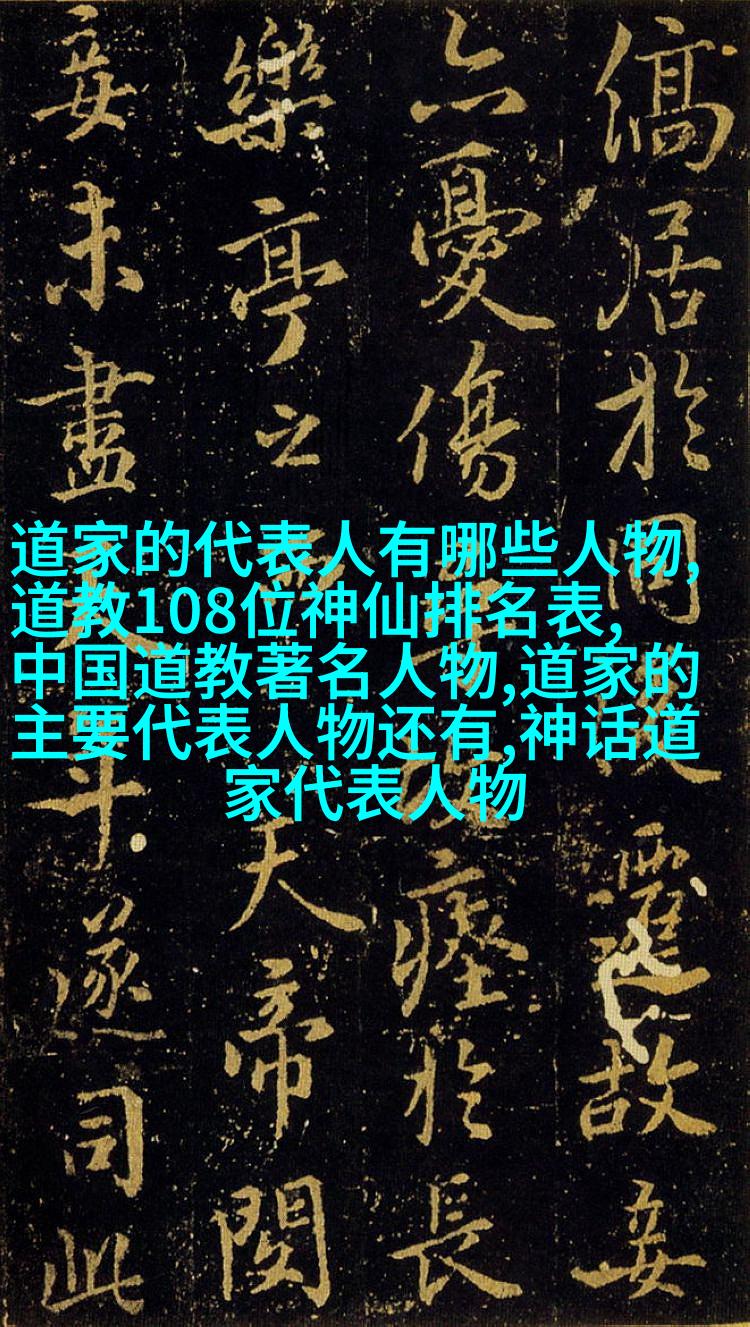 居於同遷故妾
亡憂傷瘞於長
樂亭之天帝閔
妾未盡天年遂司此
道家的代表人有哪些人物,
道教108位神仙排名表,
中国道教著名人物,道家的
主要代表人物还有,神话道
家代表人物